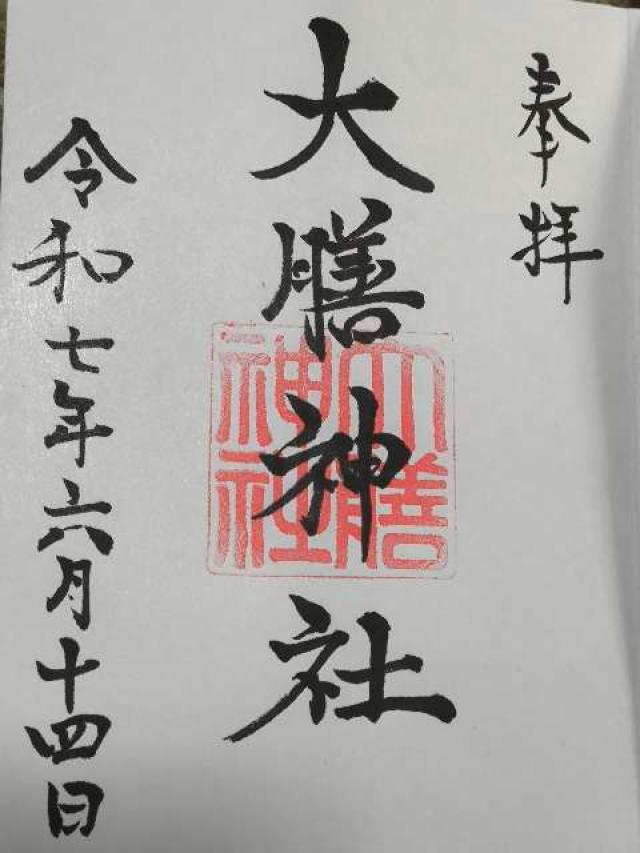 奉拝
大膳神社
大膳
神社
令和七年六月十四日